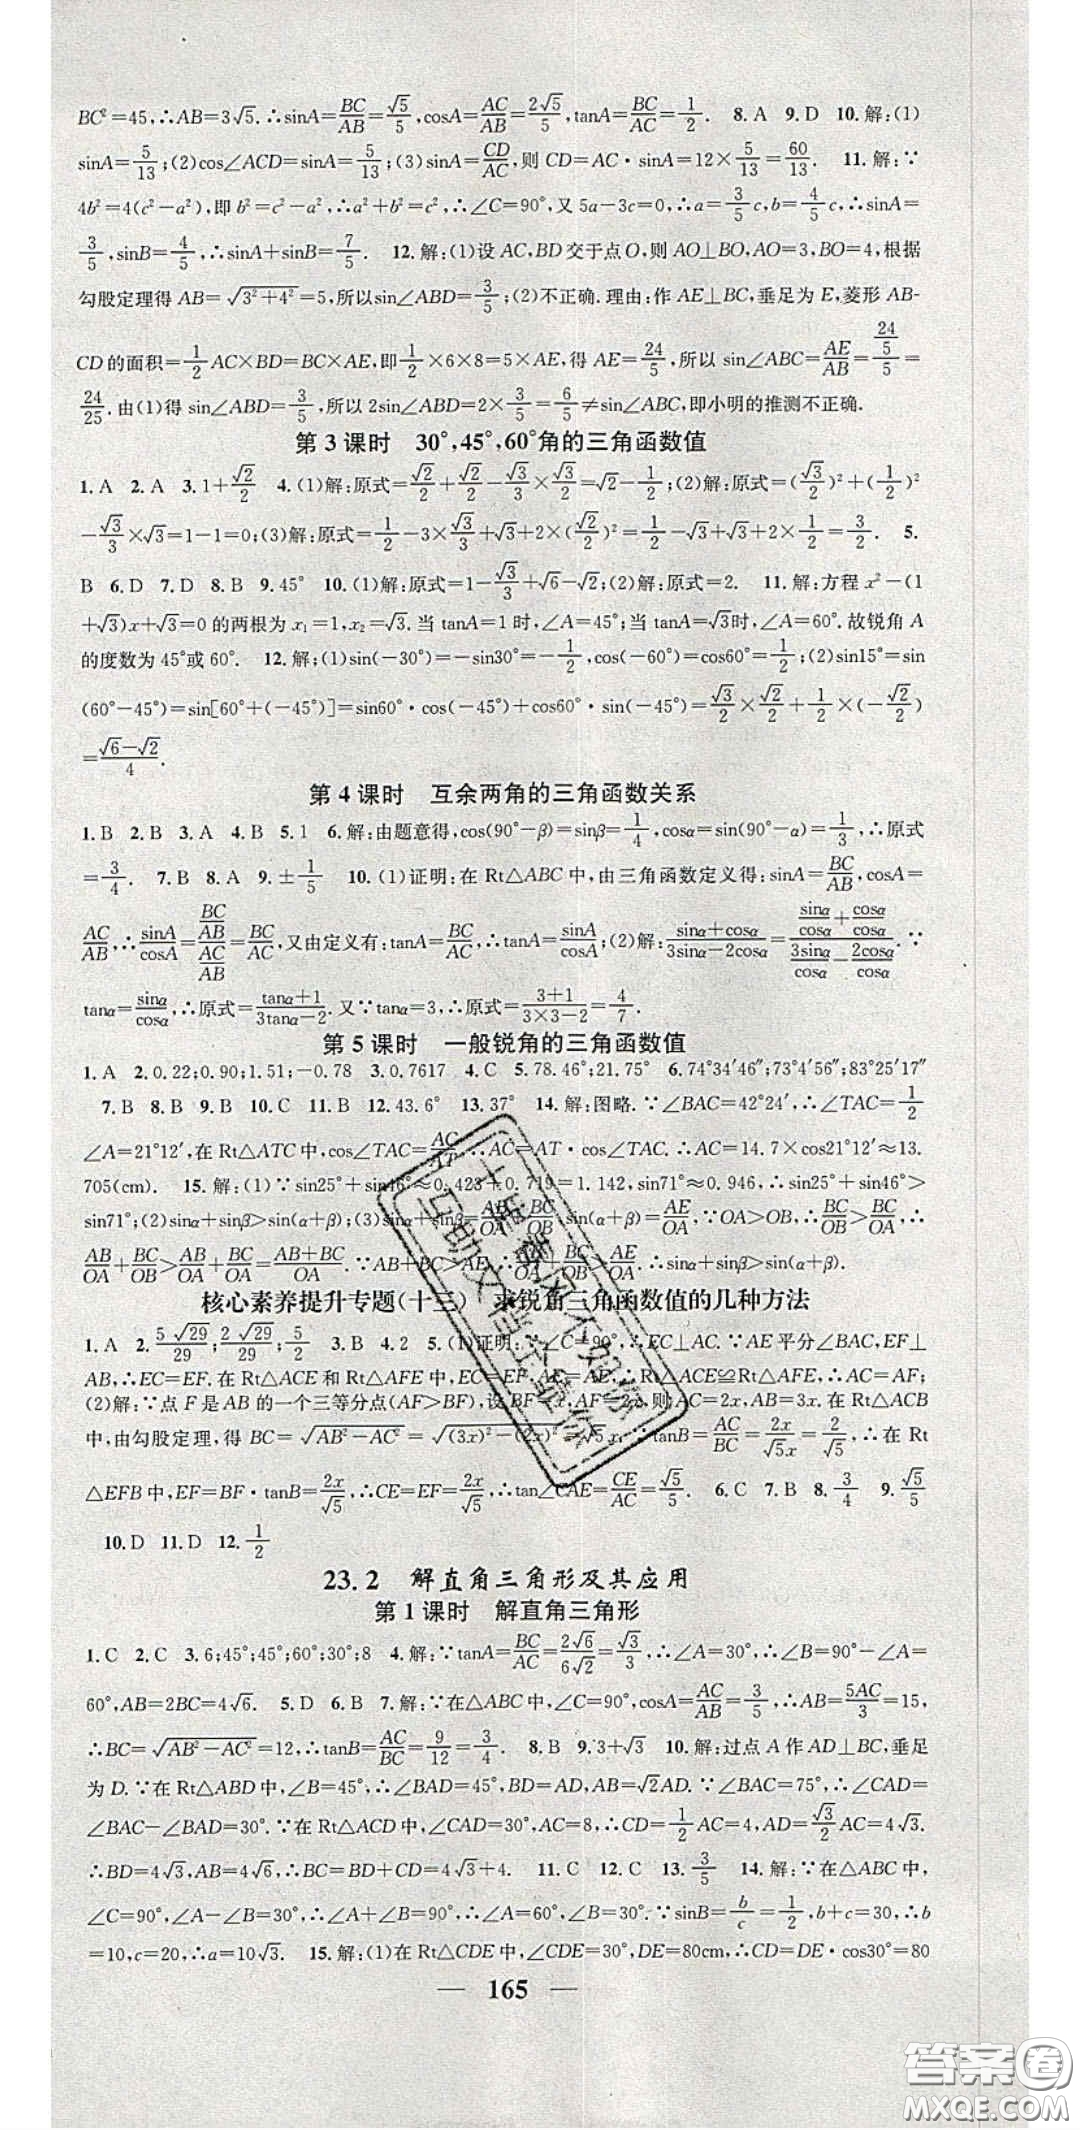 BC²=45,∴AB=3√5.∴sinA=BC/AB=√5/5,cosA=AC/AB=2√5/5,tanA=BC/AC=1/2. 8.A 9.D 10.解:(1)
sinA=5/13;(2)cos∠ACD=sinA=5/13;(3)sinA=CD/AC,则 CD=AC·sinA=12×5/13=60/13. 11.解:∵
4b²=4(c²-a²),即 b²=c²-a²,∴a²+b²=c²,∴∠C=90°,又 5a-3c=0,∴a=3/5c,b=4/5c,∴sinA=
3/5,sinB=4/5,∴sinA+sinB=7/5. 12.解:(1)设 AC,BD 交于点 O,则 AO⊥BO,AO=3,BO=4,根据
勾股定理得 AB=√(3²+4²)=5,所以sin∠ABD=3/5;(2)不正确.理由:作 AE⊥BC,垂足为 E,菱形 AB-
CD 的面积=1/2AC×BD=BC×AE,即1/2×6×8=5×AE,得 AE=24/5,所以 sin∠ABC=AE/AB=(24/5)/5=
24/25.由(1)得 sin∠ABD=3/5,所以 2sin∠ABD=2×3/5=6/5≠sin∠ABC,即小明的推测不正确.
第 3 课时 30°,45°,60°角的三角函数值
1.A 2.A 3.1+√2/2 4.(1)解:原式=√2/2+√2/2-√3/3×√3/2=√2-1/2;(2)解:原式=(√3/2)²+(1/2)²
-√3/3×√3=1-1=0;(3)解:原式=1/2-3×√3/3+√3+2×(√2/2)²=1/2-√3+√3+2×1/2=3/2. 5.
B 6.D 7.D 8.B 9.45° 10.(1)解:原式=1-√3/3+√6-√2;(2)解:原式=2. 11.解:方程 x²-(1
+√3)x+√3=0 的两根为 x₁=1,x₂=√3.当 tanA=1 时,∠A=45°;当 tanA=√3时,∠A=60°.故锐角 A
的度数为 45°或 60°. 12.解:(1)sin(-30°)=-sin30°=-1/2,cos(-60°)=cos60°=1/2;(2)sin15°=sin
(60°-45°)=sin[60°+(-45°)]=sin60°·cos(-45°)+cos60°·sin(-45°)=√3/2×√2/2+1/2×(-√2/2)
=(√6-√2)/4.
第 4 课时 互余两角的三角函数关系
1.B 2.B 3.A 4.B 5.1 6.解:由题意得,cos(90°-β)=sinβ=1/4,cosα=sin(90°-α)=1/3,∴原式
=3/4. 7.B 8.A 9.±1/5 10.(1)证明:在 Rt△ABC 中,由三角函数定义得:sinA=BC/AB,cosA=
AC/AB,∴sinA/cosA=(BC/AB)/(AC/AB)=BC/AC,又由定义有:tanA=BC/AC,∴tanA=sinA/cosA;(2)解:(sinα+cosα)/(3sinα-2cosα)=(sinα/cosα+cosα/cosα)/(3sinα/cosα-2cosα/cosα).∵
tanα=sinα/cosα,∴原式=(tanα+1)/(3tanα-2).又∵tanα=3,∴原式=(3+1)/(3×3-2)=4/7.
第 5 课时 一般锐角的三角函数值
1.A 2.0.22;0.90;1.51;-0.78 3.0.7617 4.C 5.78.46°;21.75° 6.74°34′46″;73°44′23″;83°25′17″
7.B 8.B 9.B 10.C 11.B 12.43.6° 13.37° 14.解:图略.∵∠BAC=42°24′,∴∠TAC=1/2
∠A=21°12′,在 Rt△ATC 中,cos∠TAC=AC/AT.∴AC=AT·cos∠TAC.∴AC=14.7×cos21°12′≈13.
705(cm). 15.解:(1)∵sin25°+sin46°≈0.423+0.719=1.142,sin71°≈0.946,∴sin25°+sin46°>
sin71°;(2)sinα+sinβ>sin(α+β);(3)sinα+sinβ=AB/OA+BC/OB,sin(α+β)=AE/OA,∵OA>OB,∴BC/OB>BC/OA,∴
AB/OA+BC/OB>AB/OA+BC/OA=(AB+BC)/OA.∵AB+BC>AE,∴AB/OA+BC/OB>AE/OA,∴sinα+sinβ>sin(α+β).
核心素养提升专题(十三) 求锐角三角函数值的几种方法
1.A 2.5√29/29;2√29/29;5/2 3.B 4.2 5.(1)证明:∵∠C=90°,∴EC⊥AC.∵AE 平分∠BAC,EF⊥
AB,∴EC=EF.在 Rt△ACE 和 Rt△AFE 中,EC=EF,AE=AE,∴Rt△ACE≌Rt△AFE,∴AC=AF;
(2)解:∵点 F 是 AB 的一个三等分点(AF>BF),设 BF=x,AF=2x,则 AC=2x,AB=3x.在 Rt△ACB
中,由勾股定理,得 BC=√(AB²-AC²)=√((3x)²-(2x)²)=√5x.∵tanB=AC/BC=2x/√5x=2/√5,∴在 Rt
△EFB 中,EF=BF·tanB=2x/√5,∴CE=EF=2x/√5,∴tan∠CAE=CE/AC=√5/5. 6.C 7.B 8.3/4 9.√5/5
10.D 11.D 12.1/2
23.2 解直角三角形及其应用
第 1 课时 解直角三角形
1.C 2.C 3.6;45°;45°;60°;30°;8 4.解:∵tanA=BC/AC=2√6/6√2=√3/3,∴∠A=30°,∴∠B=90°-∠A=
60°,AB=2BC=4√6. 5.D 6.B 7.解:∵在△ABC 中,∠C=90°,cosA=AC/AB=3/5,∴AB=5AC/3=15,
∴BC=√(AB²-AC²)=12,∴tanB=AC/BC=9/12=3/4. 8.B 9.3+√3 10.解:过点 A 作 AD⊥BC,垂足
为 D.∵在 Rt△ABD 中,∠B=45°,∴∠BAD=45°,BD=AD,AB=√2AD.∵∠BAC=75°,∴∠CAD=
∠BAC-∠BAD=30°.∵在 Rt△ACD 中,∠CAD=30°,AC=8,∴CD=1/2AC=4,AD=√3/2AC=4√3.
∴BD=4√3,AB=4√6,∴BC=BD+CD=4√3+4. 11.C 12.C 13.3/5 14.解:∵在△ABC 中,
∠C=90°,∠A-∠B=30°,∴∠A+∠B=90°,∴∠A=60°,∠B=30°.∵sinB=b/c=1/2,b+c=30,∴b
=10,c=20,∴a=10√3. 15.解:(1)在 Rt△CDE 中,∠CDE=30°,DE=80cm,∴CD=DE·cos30°=80
— 165 —
答案圈
MXQE.COM